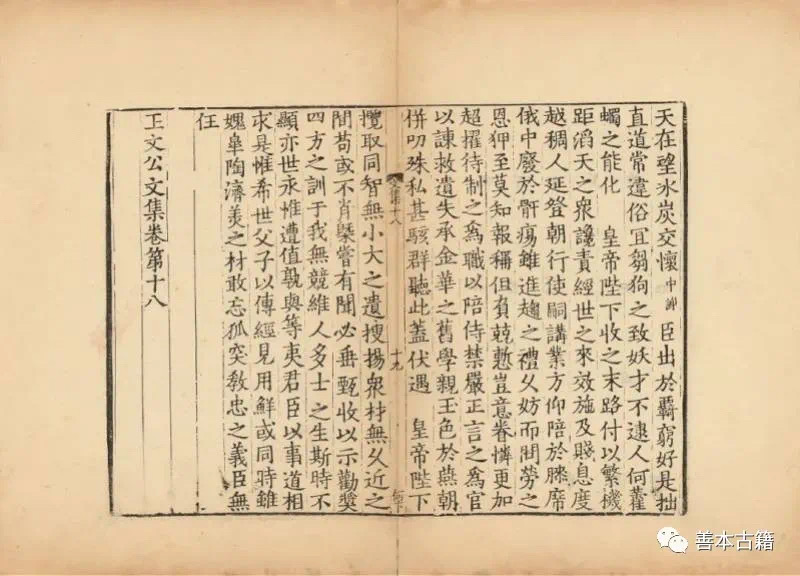 天在望氷炭交懷中謝臣出於羈窮好是拙
直道常違俗冝芻狗之致妖才不逮人何藿
蠋之能化　皇帝陛下收之末路付以繁機
距滔天之衆讒責經世之來效施及賤息度
越稠人延登朝行使嗣講業方仰陪於滕席
俄中廢於骭瘍雖進趨之禮久妨而問勞之
恩狎至莫知報稱但負兢慙豈意眷憐更加
超擢待制之爲職以陪侍禁嚴正言之爲官
以諫救遺失承金華之舊學親玉色於燕朝
併叨殊私甚駭群聽此蓋伏遇　皇帝陛下
文集十八
十九
攬取同智無小大之遺搜揚衆材無久近之
間苟或不肖槩嘗有聞必垂甄收以示勸奬
四方之訓于我無競維人多士之生斯時不
顯亦世永惟遭值孰與等夷君臣以事道相
求是惟希世父子以傳經見用鮮或同時雖
媿皐陶濟美之材敢忘孤突敎忠之義臣無
任
王文公文集卷第十八
善本古籍